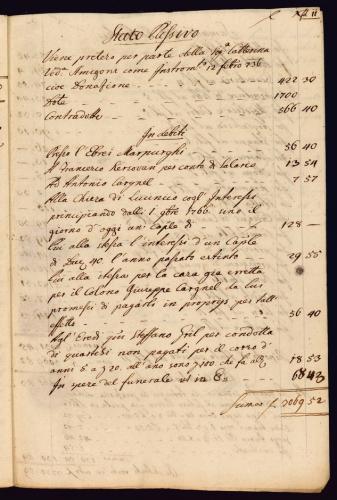 Stato Passivo
Viene preteso per parte della Catterina
Ved. Amigoni come Instrom. 12 736
cioe Donazione - - - 422 30
Dote - - - 1700
Contradote - - - 566 40
Indebiti
l'Ebrei Marpurghi - - - 56 40
A Francesco per conto di Salario - 13 54
Ad Antonio Cargnel - - - 7 57
Alla Chiesa di Lucinico cogl' Interessi
principiando dalli 1 9bre 1760 sino il
giorno d'oggi un Caple di - - 128 —
alla stessa l'interessi d'un Caple
di 40 l'anno passato estinto - - 29 55
alla stessa per la casa gia eretta
per il Colono Giuseppe Cargnel da lui
promessi di pagarsi in proprijs per tall'
effetto - - - 56 40
Agl' Eredi Steffano per condotta
di quartesi non pagati per il corso d'
anni 6 a 20. all' anno sono che fa 18 53
In spese del funerale - - 68 43
Suma f. 3069 52